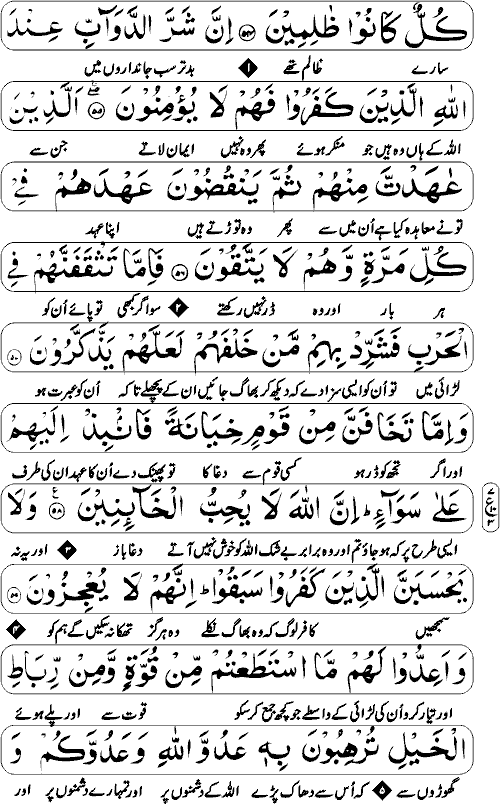 كُلٌّ كَانُوْا ظٰلِمِيْنَ ۝۵۴ اِنَّ شَرَّ الدَّوَآبِّ عِنْدَ
سارے ظالم تھے ۱ بدتر سب جانداروں میں
اللّٰهِ الَّذِيْنَ كَفَرُوْا فَهُمْ لَا يُؤْمِنُوْنَ ۝۵۵ۖۚ اَلَّذِيْنَ
اللہ کے ہاں وہ ہیں جو منکر ہوئے پھر وہ نہیں ایمان لاتے جن سے
عٰهَدْتَّ مِنْهُمْ ثُمَّ يَنْقُضُوْنَ عَهْدَهُمْ فِيْ
تو نے معاہدہ کیا ہے اُن میں سے پھر وہ توڑتے ہیں اپنا عہد
كُلِّ مَرَّةٍ وَّهُمْ لَا يَتَّقُوْنَ ۝۵۶ فَاِمَّا تَثْقَفَنَّهُمْ فِي
ہر بار اور وہ ڈر نہیں رکھتے ۲ سو اگر کبھی تو پائے اُن کو
الْحَرْبِ فَشَرِّدْ بِهِمْ مَّنْ خَلْفَهُمْ لَعَلَّهُمْ يَذَّكَّرُوْنَ ۝۵۷
لڑائی میں تو اُن کو ایسی سزا دے کہ دیکھ کر بھاگ جائیں ان کے پچھلے تاکہ اُن کو عبرت ہو
وَاِمَّا تَخَافَنَّ مِنْ قَوْمٍ خِيَانَةً فَانْۢبِذْ اِلَيْهِمْ
اور اگر تجھ کو ڈر ہو کسی قوم سے دغا کا تو پھینک دے اُن کا عہد ان کی طرف
عَلٰى سَوَآءٍ ؕ اِنَّ اللّٰهَ لَا يُحِبُّ الْخَآئِنِيْنَ ۝۵۸ۧ وَلَا
ایسی طرح پر کہ ہو جاؤ تم اور وہ برابر بے شک اللہ کو خوش نہیں آتے دغا باز ۳ اور یہ نہ
يَحْسَبَنَّ الَّذِيْنَ كَفَرُوْا سَبَقُوْا ؕ اِنَّهُمْ لَا يُعْجِزُوْنَ ۝۵۹
سمجھیں کافر لوگ کہ وہ بھاگ نکلے وہ ہرگز تھکا نہ سکیں گے ہم کو ۴
وَاَعِدُّوْا لَهُمْ مَّا اسْتَطَعْتُمْ مِّنْ قُوَّةٍ وَّمِنْ رِّبَاطِ
اور تیار کرو اُن کی لڑائی کے واسطے جو کچھ جمع کر سکو قوت سے اور پلے ہوئے
الْخَيْلِ تُرْهِبُوْنَ بِهٖ عَدُوَّ اللّٰهِ وَعَدُوَّكُمْ وَ
گھوڑوں سے ۵ کہ اُس سے دھاک پڑے اللہ کے دشمنوں پر اور تمہارے دشمنوں پر اور